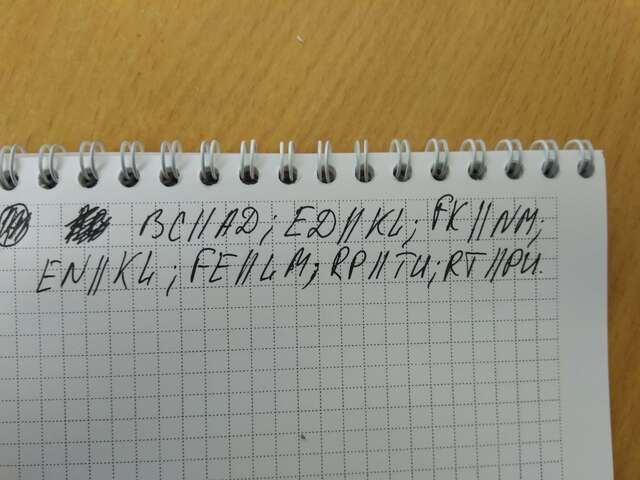 BC//AD; ED//KL; FK//NM;
EN//KL; FE//LM; RP//TU; RT//PU.